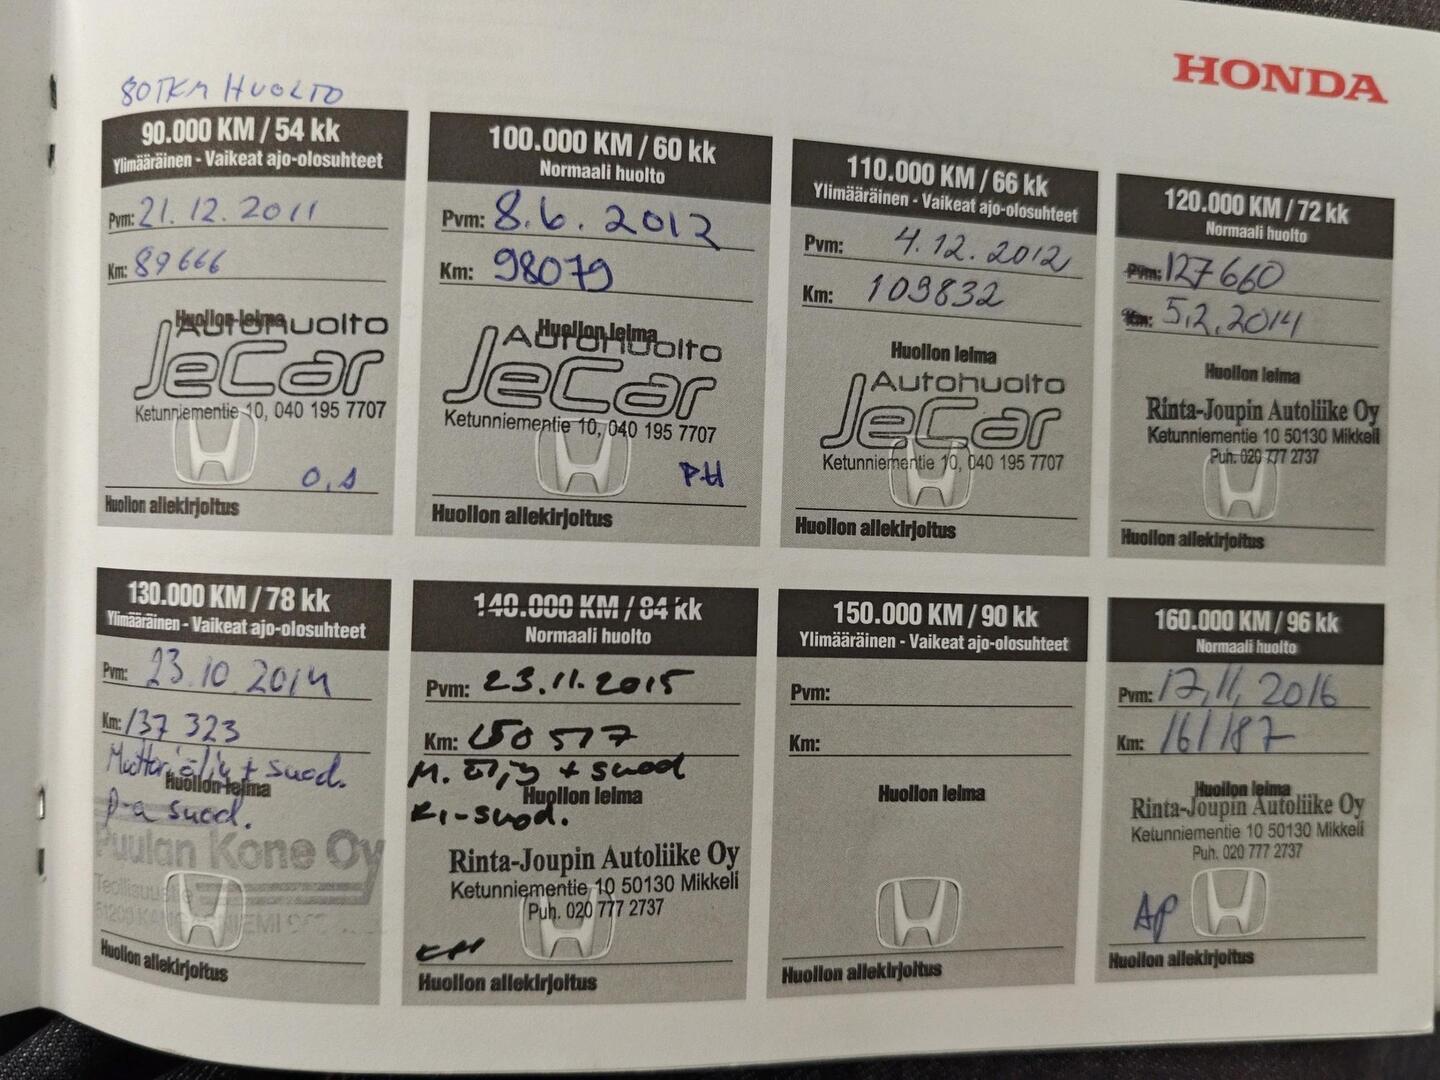 HONDA
80TKM HUOLTO
90.000 KM / 54 kk
Ylimääräinen - Vaikeat ajo-olosuhteet
Pvm: 21.12.2011
Km: 89666
Huollon leima
Autohuolto
JeCar
Ketunniementie 10, 040 195 7707
O.A
Huollon allekirjoitus
100.000 KM / 60 kk
Normaali huolto
Pvm: 8.6.2012
Km: 98079
Huollon leima
Autohuolto
JeCar
Ketunniementie 10, 040 195 7707
P.H
Huollon allekirjoitus
110.000 KM / 66 kk
Ylimääräinen - Vaikeat ajo-olosuhteet
Pvm: 4.12.2012
Km: 109832
Huollon leima
Autohuolto
JeCar
Ketunniementie 10, 040 195 7707
Huollon allekirjoitus
120.000 KM / 72 kk
Normaali huolto
Pvm: 127660
Km: 5.2.2014
Huollon leima
Rinta-Joupin Autoliike Oy
Ketunniementie 10 50130 Mikkeli
Puh. 020 777 2737
Huollon allekirjoitus
130.000 KM / 78 kk
Ylimääräinen - Vaikeat ajo-olosuhteet
Pvm: 23.10.2014
Km: 137 323
Moottoriöljy + suod.
Huollon leima
R-a suod.
Puulan Kone Oy
Teollisuustie
51200 KANGASNIEMI
Huollon allekirjoitus
140.000 KM / 84 kk
Normaali huolto
Pvm: 23.11.2015
Km: 150 517
M. öljy + suod
Huollon leima
Ri-suod.
Rinta-Joupin Autoliike Oy
Ketunniementie 10 50130 Mikkeli
Puh. 020 777 2737
Huollon allekirjoitus
150.000 KM / 90 kk
Ylimääräinen - Vaikeat ajo-olosuhteet
Pvm:
Km:
Huollon leima
Huollon allekirjoitus
160.000 KM / 96 kk
Normaali huolto
Pvm: 17.11.2016
Km: 161187
Huollon leima
Rinta-Joupin Autoliike Oy
Ketunniementie 10 50130 Mikkeli
Puh. 020 777 2737
AP
Huollon allekirjoitus